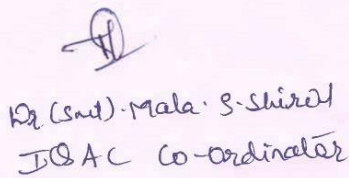 Dr. (Smt). Mala. S. Shirol
IQAC Co-ordinator